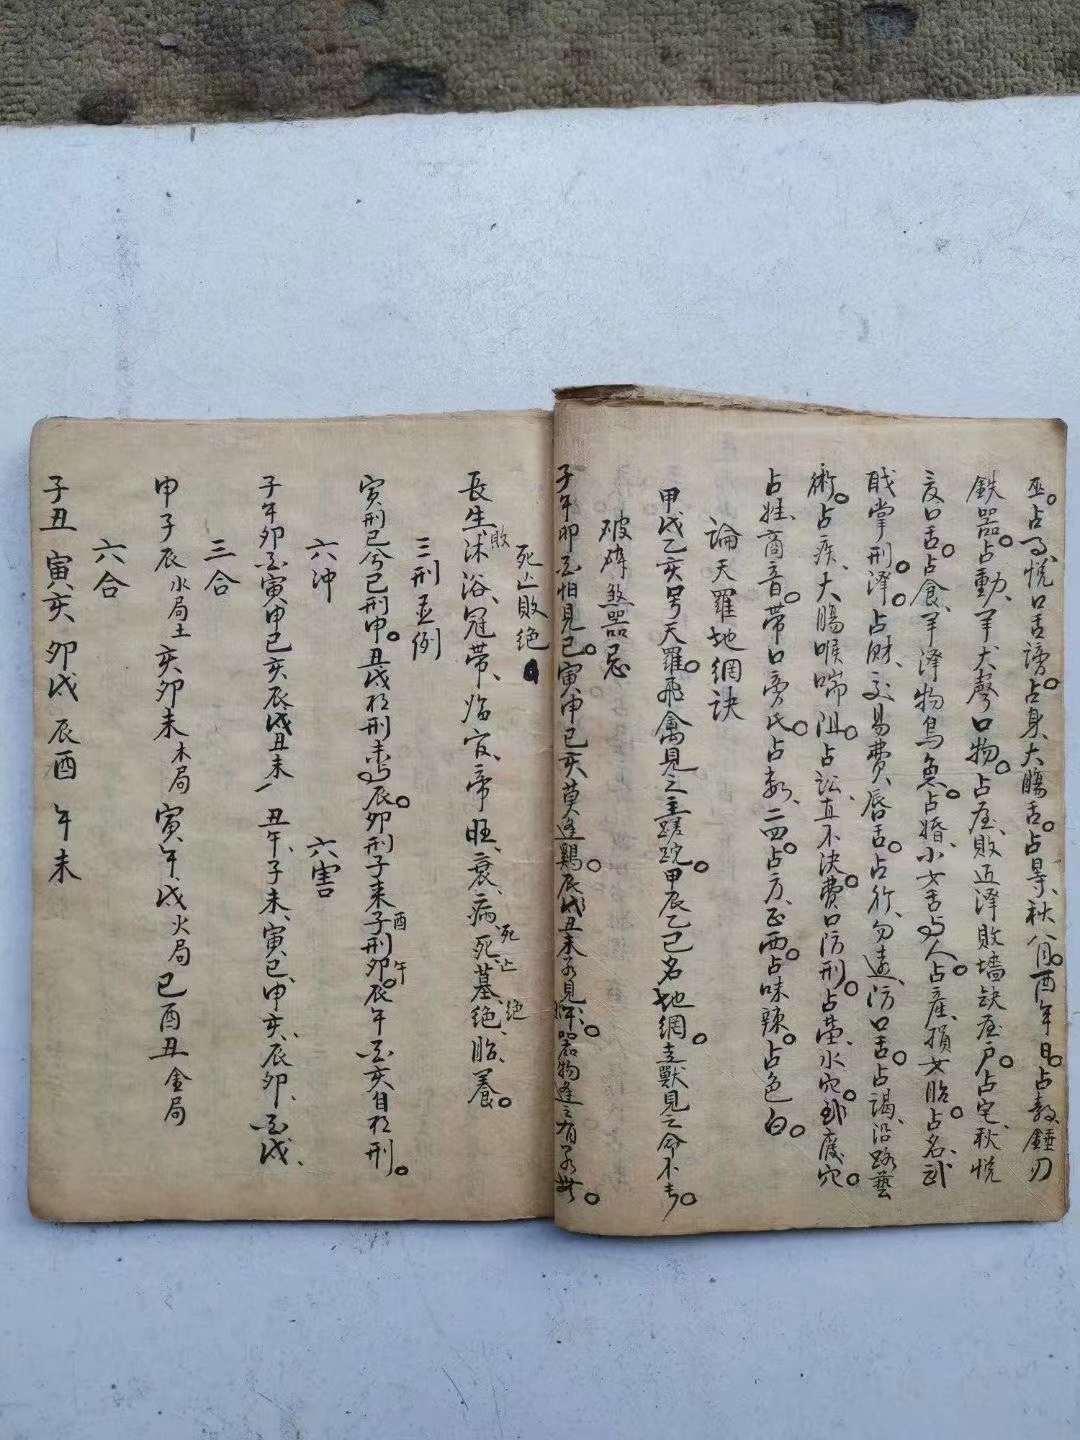 巫。占悅口舌謗。占身大腸舌。占旱秋八月。酉年日。占穀錘刃
鉄器。占動、羊犬聲口物。占屋敗近泽敗墻缺屋户。占宅秋悅
口舌。占食羊泽物鳥魚。占婚小女害人。占產損女胎。占名武
戝掌刑泽。占財交易費唇舌。占行勿遠防口舌。占謁沿路藝
術。占疾大腸喉喘阻。占訟直不決費口防刑。占塟水穴或廢穴。
占姓商音帶口旁氏。占数二四。占方正西。占味辣。占色白。
論天羅地網訣
甲戌乙亥号天羅。飛禽見之主蹉跎。甲辰乙巳名地網。走獸見之命不去。
破碎煞器忌
子午卯酉怕見巳。寅申巳亥莫逢鷄。辰戌丑未不見牛。器物逢之有不。
死亡敗絕
長生、沐浴、冠帶、临官、帝旺、衰、病、死、墓、絕、胎、養。
敗 死亡 绝
三刑並例
寅刑巳兮巳刑申。丑戌相刑未与辰。卯刑子来子刑卯。辰午酉亥自相刑。
酉 午
六冲 六害
子午卯酉寅申巳亥辰戌丑未 丑午、子未、寅巳、申亥、辰卯、酉戌、
三合
申子辰水局土 亥卯未木局 寅午戌火局 巳酉丑金局
六合
子丑 寅亥 卯戌 辰酉 午未